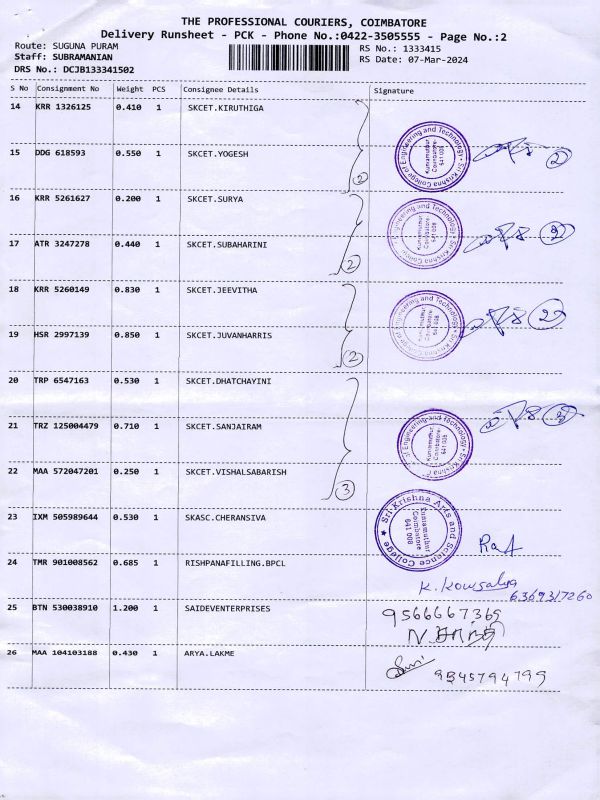 THE PROFESSIONAL COURIERS, COIMBATORE
Delivery Runsheet - PCK - Phone No.:0422-3505555 - Page No.:2
Route: SUGUNA PURAM
Staff: SUBRAMANIAN
DRS No.: DCJB133341502
RS No.: 1333415
RS Date: 07-Mar-2024
S No Consignment No Weight PCS Consignee Details Signature
14 KRR 1326125 0.410 1 SKCET.KIRUTHIGA
15 DDG 618593 0.550 1 SKCET.YOGESH
2
Sri Krishna College of Engineering and Technology
Kuniamuthur
Coimbatore
641 008
2
16 KRR 5261627 0.200 1 SKCET.SURYA
17 ATR 3247278 0.440 1 SKCET.SUBAHARINI
2
Sri Krishna College of Engineering and Technology
Kuniamuthur
Coimbatore
641 008
2
18 KRR 5260149 0.830 1 SKCET.JEEVITHA
19 HSR 2997139 0.850 1 SKCET.JUVANHARRIS
2
Sri Krishna College of Engineering and Technology
Kuniamuthur
Coimbatore
641 008
2
20 TRP 6547163 0.530 1 SKCET.DHATCHAYINI
21 TRZ 125004479 0.710 1 SKCET.SANJAIRAM
22 MAA 572047201 0.250 1 SKCET.VISHALSABARISH
3
Sri Krishna College of Engineering and Technology
Kuniamuthur
Coimbatore
641 008
3
23 IXM 505989644 0.530 1 SKASC.CHERANSIVA
Sri Krishna Arts and Science College
Kuniamuthur
Coimbatore
641 008
24 TMR 901008562 0.685 1 RISHPANAFILLING.BPCL
K. Kowsalya
6369317260
25 BTN 530038910 1.200 1 SAIDEVENTERPRISES
9566667369
26 MAA 104103188 0.430 1 ARYA.LAKME
9345794799